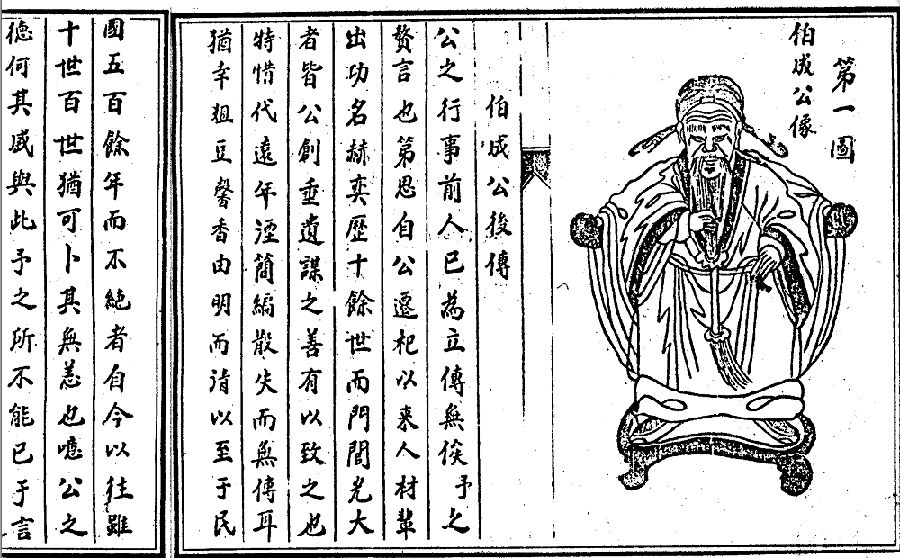 第一圖
伯成公像
伯成公後傳
公之行事前人已為立傳無俟予之
贅言也第思自公遷杞以来人材輩
出功名赫奕歷十餘世而門閭光大
者皆公創垂遺謀之善有以致之也
特惜代遠年湮簡編散失而無傳耳
猶幸俎豆馨香由明而清以至于民
國五百餘年而不絶者自今以往雖
十世百世猶可卜其無恙也噫公之
德何其盛與此予之所不能已于言